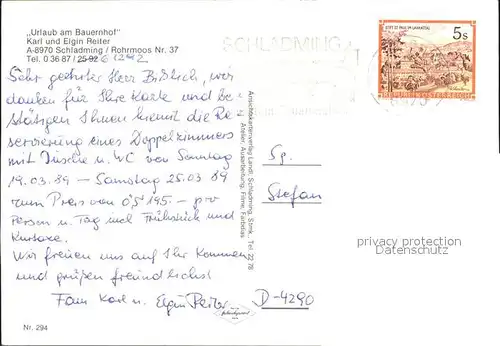 „Urlaub am Bauernhof"
Karl und Elgin Reiter
A-8970 Schladming / Rohrmoos Nr. 37
Tel. 0 36 87 / 25 92 61242
SCHLADMING
5s
STIFT ST. PAUL IM LAVANTTAL
REPUBLIK ÖSTERREICH
Sehr geehrter Herr wir
danken für Ihre Karte und be-
stätigen Ihnen hiermit die Re-
servierung eines Doppelzimmers
mit Dusche u. WC von Sonntag
19.03.89 – Samstag 25.03.89
zum Preis von öS 195.– pro
Person u. Tag incl Frühstück und
Kurtaxe.
Wir freuen uns auf Ihr Kommen
und grüßen freundlichst
Fam Karl u. Elgin Reiter
Ansichtskartenverlag Landl, Schladming, Stmk., Tel. 22 78
Atelier, Ausarbeitung, Filme, Farbdias
Sg.
Stefan
D-4290
privacy protection
Datenschutz
Nr. 294